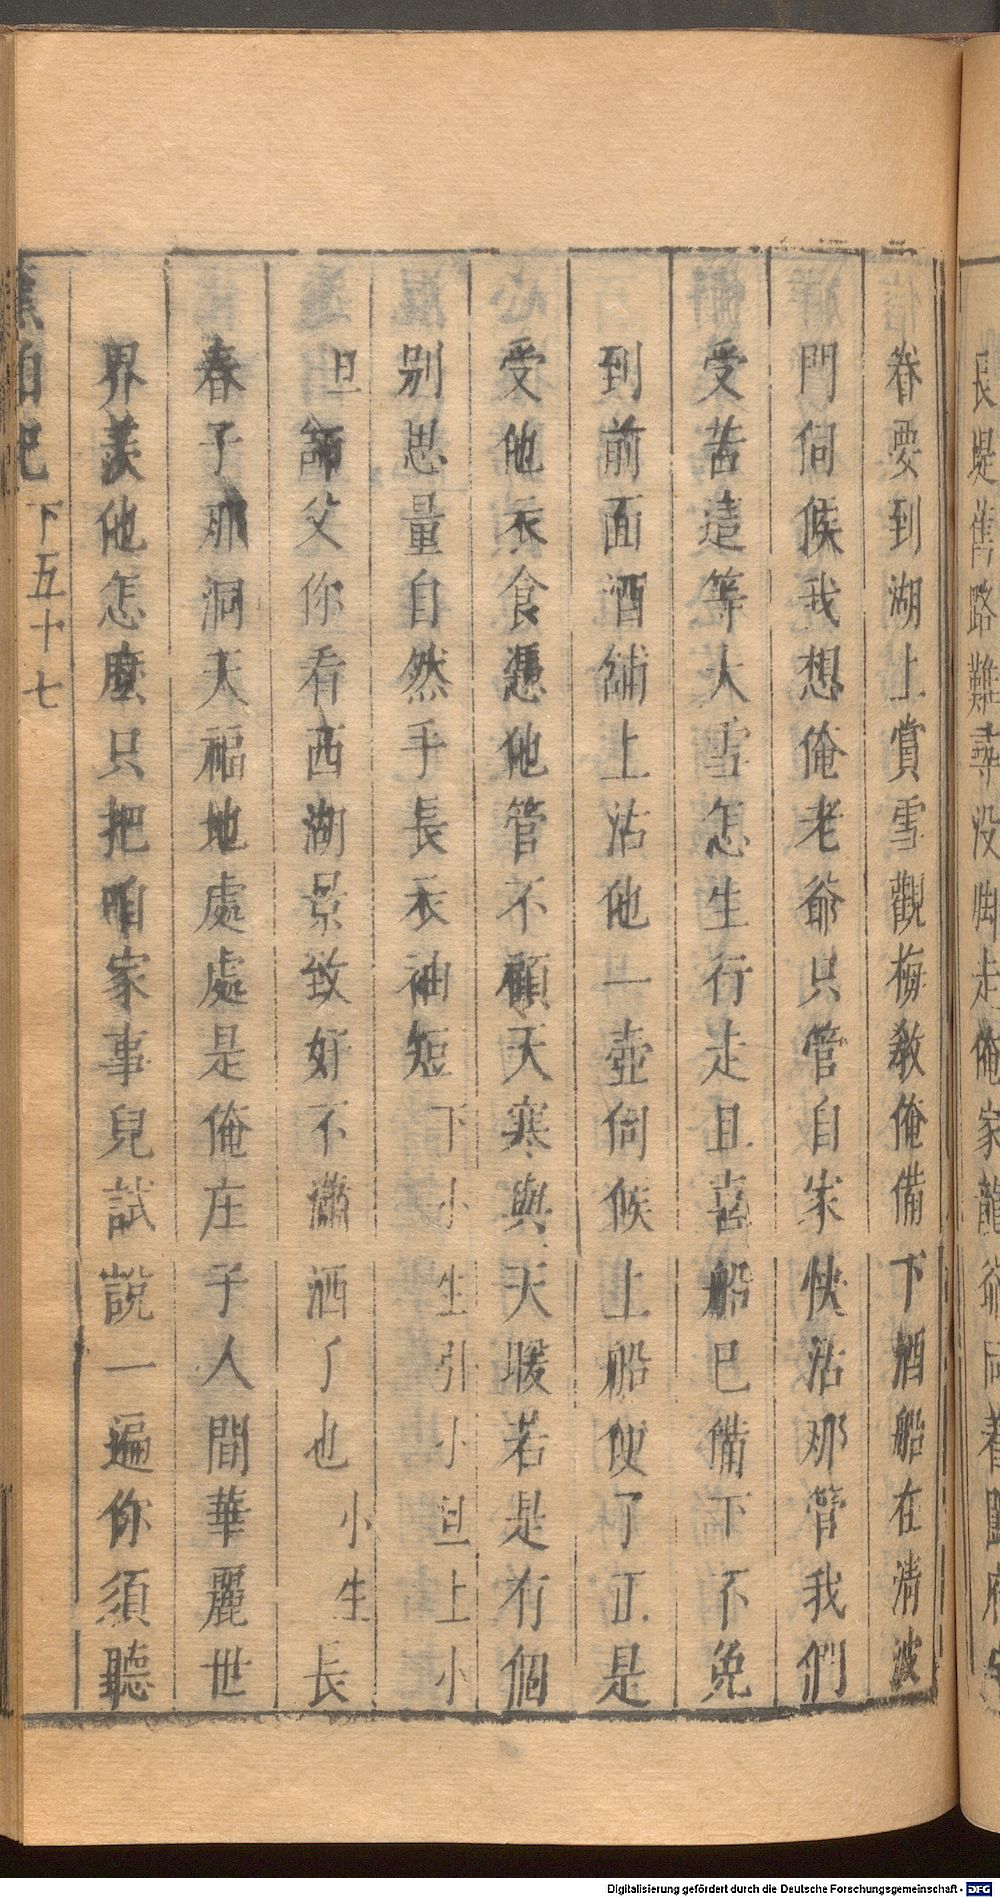 眷要到湖上賞雪觀梅教俺備下酒船在清波
門伺候我想俺老爺只管自家快活那管我們
受苦這等大雪怎生行走且喜船已備下不免
到前面酒舖上沽他一壺伺候上船便了正是
受他衣食憑他管不顧天寒與天暖若是有個
別思量自然手長衣袖短下小生引小旦上小
旦師父你看西湖景致好不瀟洒了也小生長
春子那洞天福地處處是俺庄子人間華麗世
界羡他怎麼只把咱家事兒試說一遍你須聽
蕉帕記
下五十七
長堤舊路難尋没脚走俺家龍
Digitalisierung gefördert durch die Deutsche Forschungsgemeinschaft - DFG